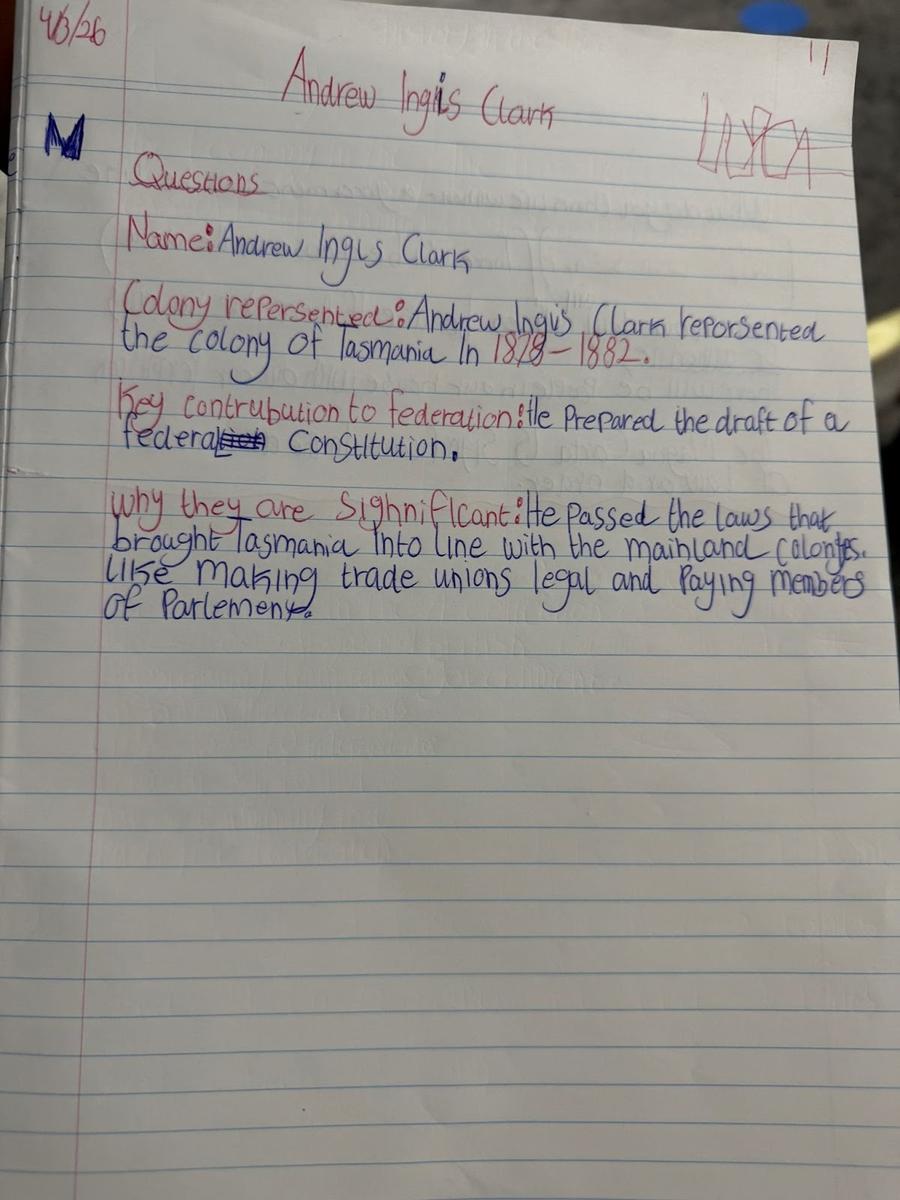 4/3/26
Andrew Ingis Clark
M
Questions
Name: Andrew Ingis Clark
Colony repersented: Andrew Ingis Clark reporsented
the colony of Tasmania in 1878-1882.
Key contrubution to federation: He Prepared the draft of a
federal Constitution.
Why they are Sighnificant: He passed the laws that
brought Tasmania into line with the mainland colonies.
Like making trade unions legal and Paying members
of Parlement.